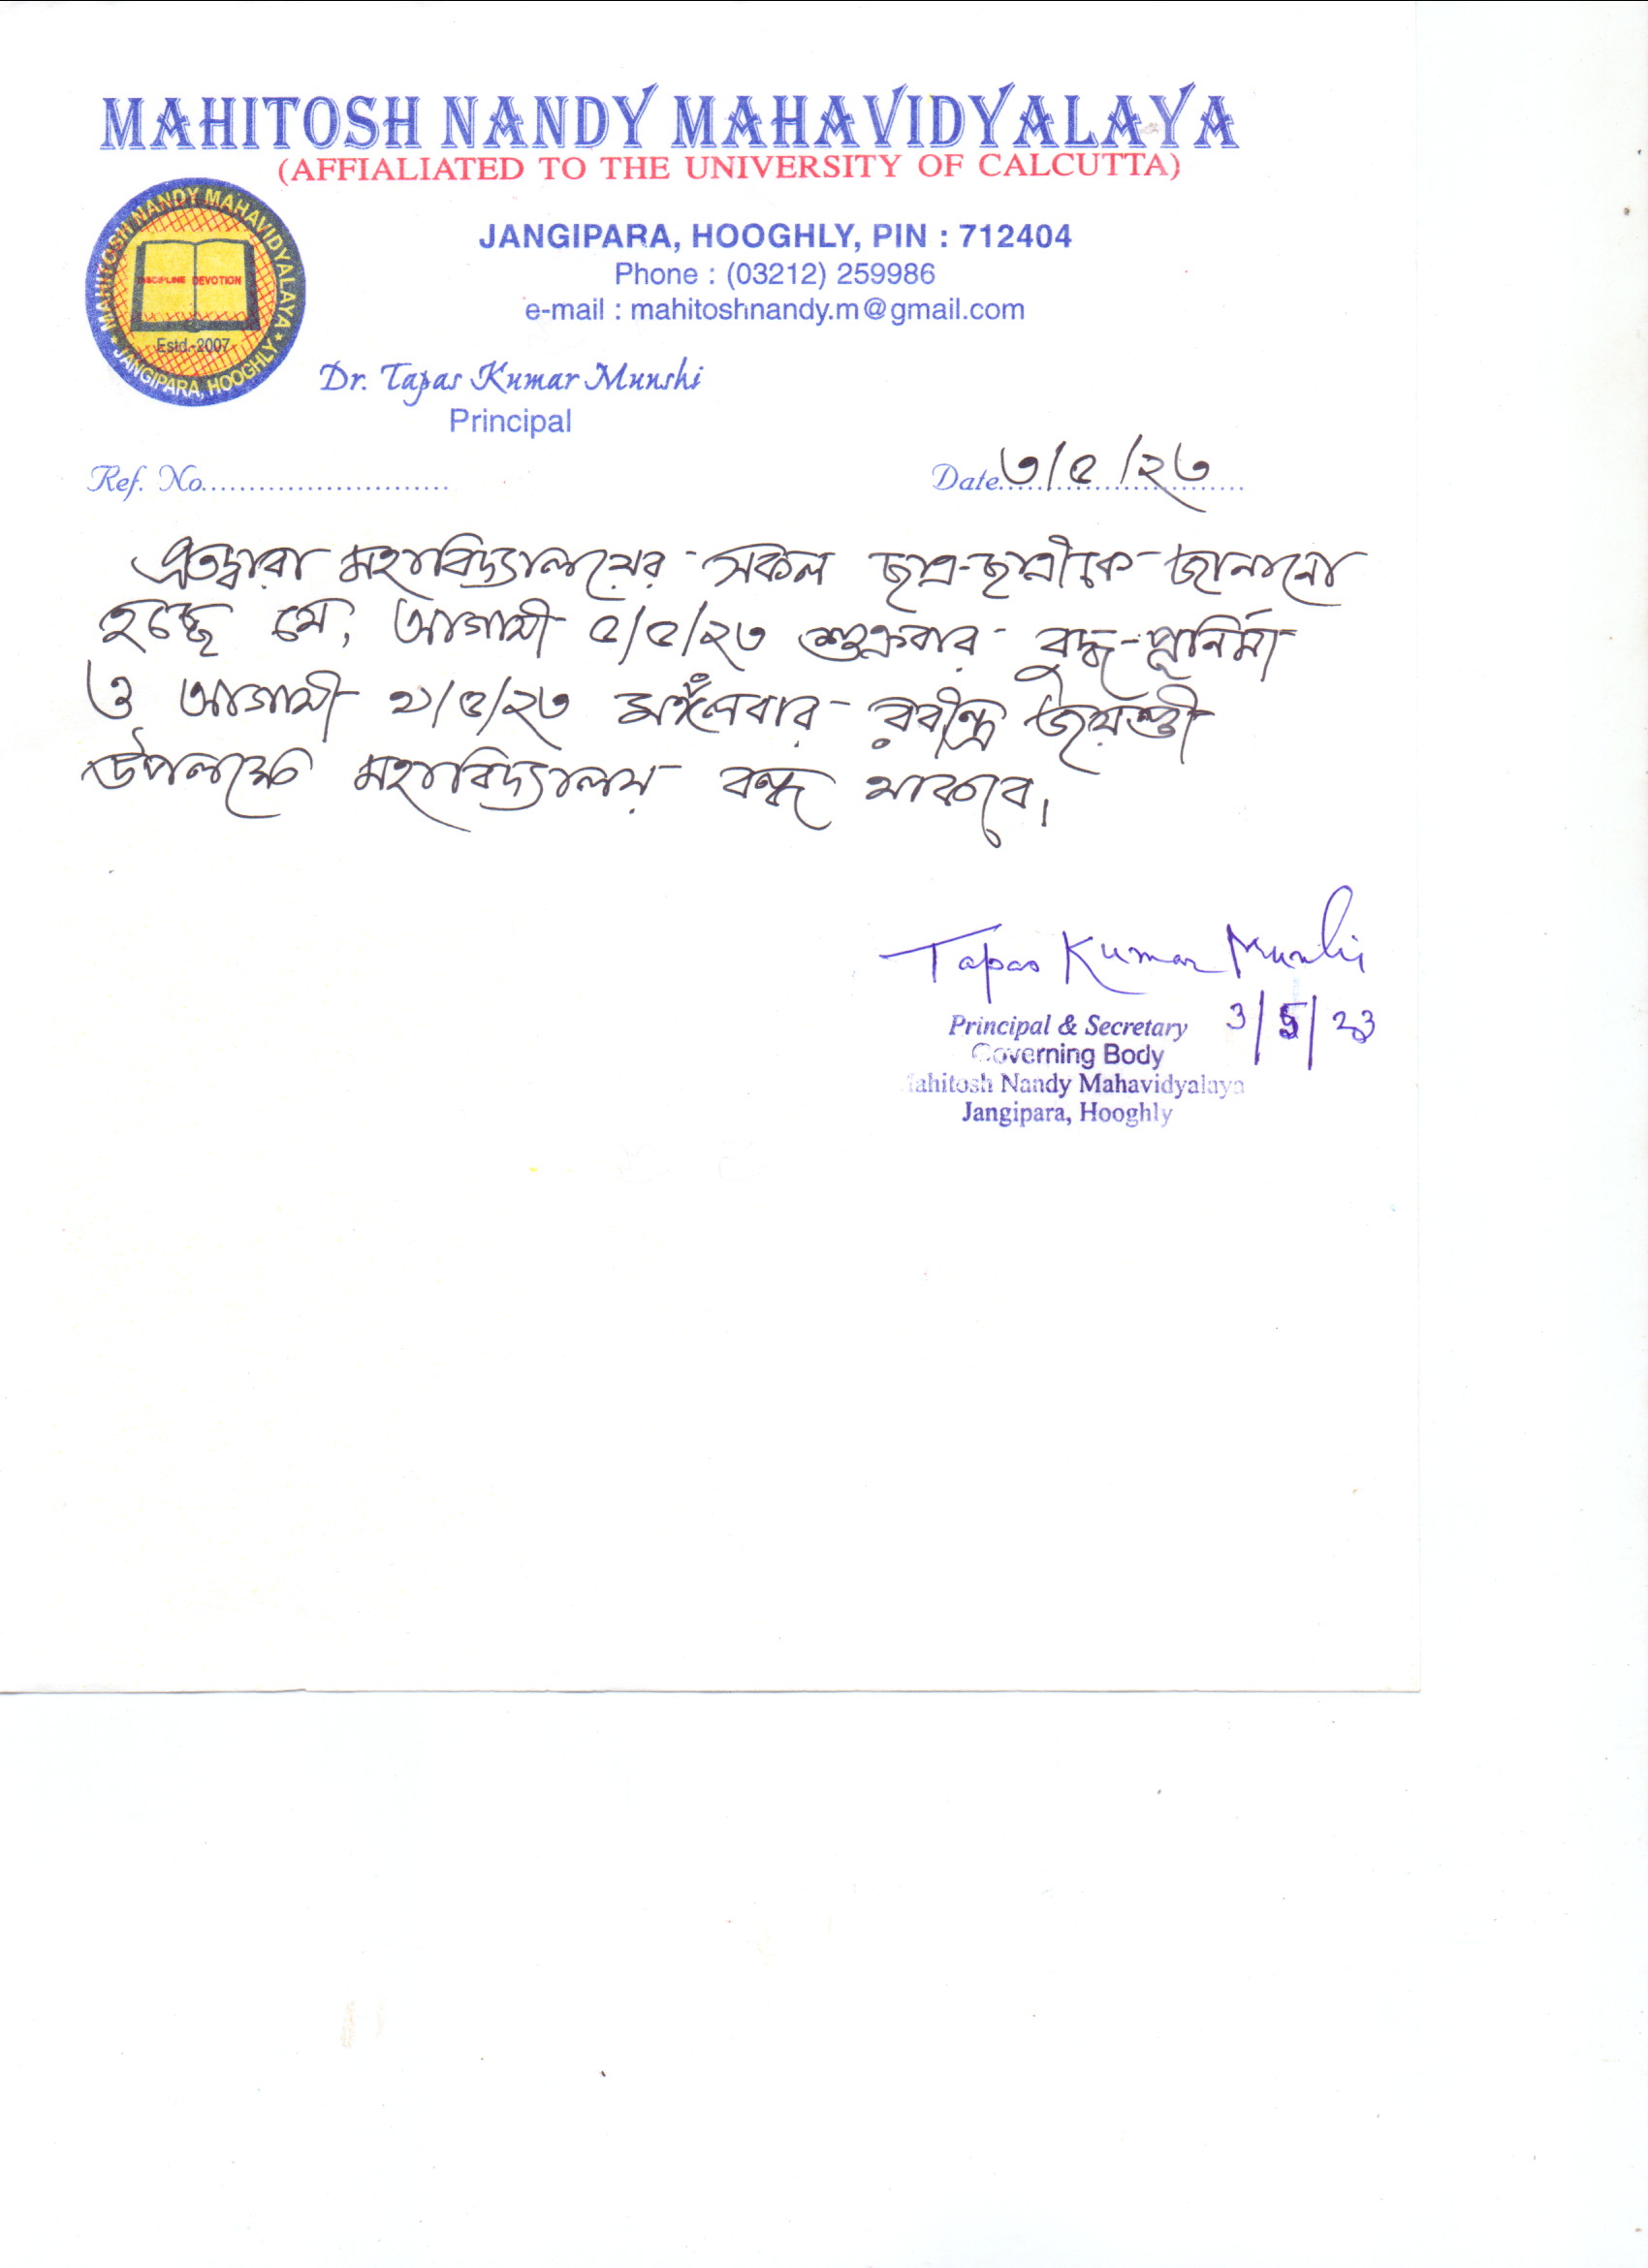 MAHITOSH NANDY MAHAVIDYALAYA
(AFFIALIATED TO THE UNIVERSITY OF CALCUTTA)
MAHITOSH NANDY MAHAVIDYALAYA
DISCIPLINE DEVOTION
Estd.-2007
JANGIPARA, HOOGHLY
JANGIPARA, HOOGHLY, PIN : 712404
Phone : (03212) 259986
e-mail : mahitoshnandy.m@gmail.com
Dr. Tapas Kumar Munshi
Principal
Ref. No.......................... Date ৩/৫/২৩
এতদ্বারা মহাবিদ্যালয়ের সকল ছাত্র-ছাত্রীকে জানানো
হচ্ছে যে, আগামী ৫/৫/২৩ শুক্রবার বুদ্ধ-পূর্নিমা
ও আগামী ৯/৫/২৩ মঙ্গলবার রবীন্দ্র জয়ন্তী
উপলক্ষে মহাবিদ্যালয় বন্ধ থাকবে।
Tapas Kumar Munshi
3/5/23
Principal & Secretary
Governing Body
Mahitosh Nandy Mahavidyalaya
Jangipara, Hooghly